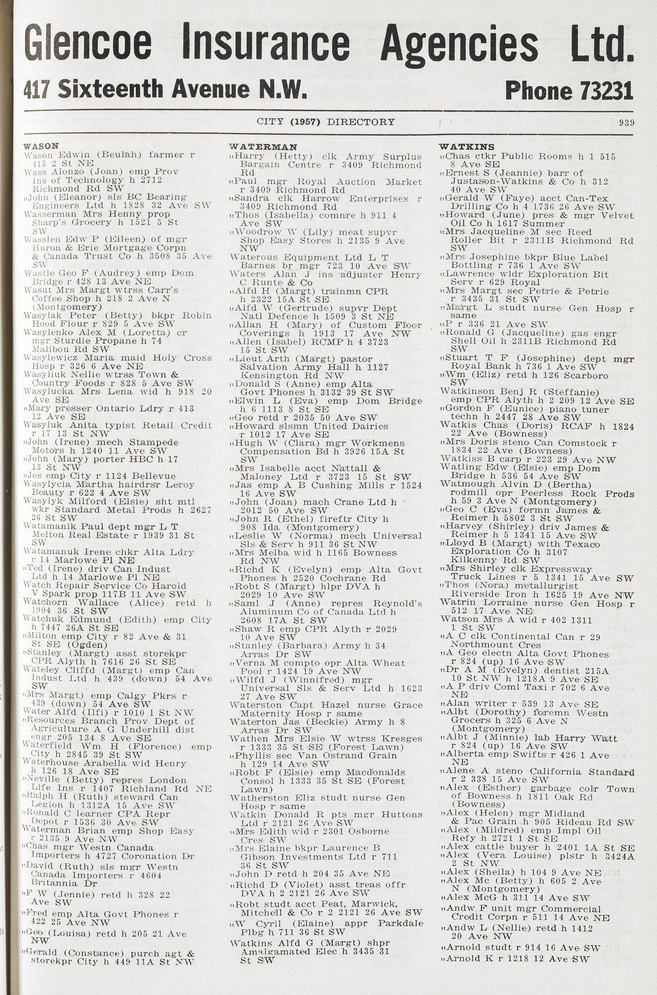 Glencoe Insurance Agencies Ltd.
417 Sixteenth Avenue N.W. Phone 73231
CITY (1957) DIRECTORY 939
WASON
Wason Edwin (Beulah) farmer r
415 2 St NE
Wass Alonzo (Joan) emp Prov
Ins of Technology h 2712
Richmond Rd SW
„John (Eleanor) sls BC Bearing
Engineers Ltd h 1828 32 Ave SW
Wasserman Mrs Henny prop
Sharp's Grocery h 1521 5 St
SW
Wasslen Edw P (Eileen) of mgr
Huron & Erie Mortgage Corpn
& Canada Trust Co h 3508 35 Ave
SW
Wastle Geo F (Audrey) emp Dom
Bridge r 428 13 Ave NE
Wasut Mrs Margt wtrss Carr's
Coffee Shop h 218 2 Ave N
(Montgomery)
Wasylak Peter (Betty) bkpr Robin
Hood Flour r 829 5 Ave SW
Wasylenko Alex M (Loretta) cr
mgr Sturdie Propane h 74
Malibou Rd SW
Wasylewicz Maria maid Holy Cross
Hosp r 326 6 Ave NE
Wasyliuk Nellie wtrss Town &
Country Foods r 828 5 Ave SW
Wasylucka Mrs Lena wid h 918 20
Ave SE
„Mary presser Ontario Ldry r 413
12 Ave SE
Wasyluk Anita typist Retail Credit
r 17 13 St NW
„John (Irene) mech Stampede
Motors h 1240 11 Ave SW
„John (Mary) porter HBC h 17
13 St NW
„Jos emp City r 1124 Bellevue
Wasylycia Martha hairdrsr Leroy
Beauty r 622 4 Ave SW
Wasylyk Milford (Elsie) sht mtl
wkr Standard Metal Prods h 2627
26 St SW
Watamanik Paul dept mgr L T
Melton Real Estate r 1939 31 St
SW
Watamanuk Irene chkr Alta Ldry
r 14 Marlowe Pl NE
„Ted (Irene) driv Can Indust
Ltd h 14 Marlowe Pl NE
Watch Repair Service Co Harold
V Spark prop 117B 11 Ave SW
Watchorn Wallace (Alice) retd h
1904 36 St SW
Watchuk Edmund (Edith) emp City
h 7447 26A St SE
„Milton emp City r 82 Ave & 31
St SE (Ogden)
„Stanley (Margt) asst storekpr
CPR Alyth h 7616 26 St SE
Wateley Cliffd (Margt) emp Can
Indust Ltd h 439 (down) 54 Ave
SW
„Mrs Margt emp Calgy Pkrs r
439 (down) 54 Ave SW
Water Alfd (Ilfr) r 1010 1 St NW
„Resources Branch Prov Dept of
Agriculture A G Underhill dist
engr 205 134 8 Ave SE
Waterfield Wm H (Florence) emp
City h 2845 39 St SW
Waterhouse Arabella wid Henry
h 126 18 Ave SE
„Neville (Betty) repres London
Life Ins r 1407 Richland Rd NE
„Ralph H (Ruth) steward Can
Legion h 1312A 15 Ave SW
„Ronald C learner CPA Repr
Depot r 1536 30 Ave SW
Waterman Brian emp Shop Easy
r 2135 9 Ave NW
„Chas mgr Westn Canada
Importers h 4727 Coronation Dr
„David (Ruth) sls mgr Westn
Canada Importers r 4604
Britannia Dr
„F W (Jennie) retd h 328 22
Ave SW
„Fred emp Alta Govt Phones r
422 25 Ave NW
„Geo (Louisa) retd h 205 21 Ave
NW
„Gerald (Constance) purch agt &
storekpr City h 449 11A St NW
WATERMAN
„Harry (Hetty) clk Army Surplus
Bargain Centre r 3409 Richmond
Rd
„Paul mgr Royal Auction Market
r 3409 Richmond Rd
„Sandra clk Harrow Enterprises r
3409 Richmond Rd
„Thos (Isabella) comnre h 911 4
Ave SW
„Woodrow W (Lily) meat supvr
Shop Easy Stores h 2135 9 Ave
NW
Waterous Equipment Ltd L T
Barnes br mgr 723 10 Ave SW
Waters Alan J ins adjuster Henry
C Runte & Co
„Alfd H (Margt) trainmn CPR
h 2322 15A St SE
„Alfd W (Gertrude) supvr Dept
Natl Defence h 1509 3 St NE
„Allan H (Mary) of Custom Floor
Coverings h 1913 17 Ave NW
„Allen (Isabel) RCMP h 4 3723
15 St SW
„Lieut Arth (Margt) pastor
Salvation Army Hall h 1127
Kensington Rd NW
„Donald S (Anne) emp Alta
Govt Phones h 3132 39 St SW
„Elwin L (Eva) emp Dom Bridge
h 6 1113 8 St SE
„Geo retd r 2035 50 Ave SW
„Howard slsmn United Dairies
r 1012 17 Ave SE
„Hugh W (Clara) mgr Workmens
Compensation Bd h 3926 15A St
SW
„Mrs Isabelle acct Nattall &
Maloney Ltd r 3723 15 St SW
„Jas emp A B Cushing Mills r 1524
16 Ave SW
„John (Joan) mach Crane Ltd h
2012 50 Ave SW
„John R (Ethel) fireftr City h
908 Ida (Montgomery)
„Leslie W (Norma) mech Universal
Sls & Serv h 911 36 St NW
„Mrs Melba wid h 1165 Bowness
Rd NW
„Richd K (Evelyn) emp Alta Govt
Phones h 2520 Cochrane Rd
„Robt S (Margt) hlpr DVA h
2029 10 Ave SW
„Saml J (Anne) repres Reynold's
Aluminum Co of Canada Ltd h
2608 17A St SW
„Shaw R emp CPR Alyth r 2029
10 Ave SW
„Stanley (Barbara) Army h 34
Arras Dr SW
„Verna M compto opr Alta Wheat
Pool r 1424 19 Ave NW
„Wilfd J (Winnifred) mgr
Universal Sls & Serv Ltd h 1623
27 Ave SW
Waterston Capt Hazel nurse Grace
Maternity Hosp r same
Waterton Jas (Beckie) Army h 8
Arras Dr SW
Wathen Mrs Elsie W wtrss Kresges
r 1333 35 St SE (Forest Lawn)
„Phyllis sec Van Ostrand Grain
h 129 14 Ave SW
„Robt F (Elsie) emp Macdonalds
Consol h 1333 35 St SE (Forest
Lawn)
Watherston Eliz studt nurse Gen
Hosp r same
Watkin Donald R pts mgr Huttons
Ltd r 2121 26 Ave SW
„Mrs Edith wid r 2301 Osborne
Cres SW
„Mrs Elaine bkpr Laurence B
Gibson Investments Ltd r 711
36 St SW
„John D retd h 204 35 Ave NE
„Richd D (Violet) asst treas offr
DVA h 2 2121 26 Ave SW
„Robt studt acct Peat, Marwick,
Mitchell & Co r 2 2121 26 Ave SW
„W Cyril (Elaine) appr Parkdale
Plbg h 711 36 St SW
Watkins Alfd G (Margt) shpr
Amalgamated Elec h 3435 31
St SW
WATKINS
„Chas ctkr Public Rooms h 1 515
8 Ave SE
„Ernest S (Jeannie) barr of
Justason-Watkins & Co h 312
40 Ave SW
„Gerald W (Faye) acct Can-Tex
Drilling Co h 4 1736 26 Ave SW
„Howard (June) pres & mgr Velvet
Oil Co h 1617 Summer
„Mrs Jacqueline M sec Reed
Roller Bit r 2311B Richmond Rd
SW
„Mrs Josephine bkpr Blue Label
Bottling r 736 1 Ave SW
„Lawrence widr Exploration Bit
Serv r 629 Royal
„Mrs Margt sec Petrie & Petrie
r 3435 31 St SW
„Margt L studt nurse Gen Hosp r
same
„P r 336 21 Ave SW
„Ronald G (Jacqueline) gas engr
Shell Oil h 2311B Richmond Rd
SW
„Stuart T F (Josephine) dept mgr
Royal Bank h 736 1 Ave SW
„Wm (Eliz) retd h 126 Scarboro
SW
Watkinson Benj R (Steffanie)
emp CPR Alyth h 2 209 12 Ave SE
„Gordon F (Eunice) piano tuner
techn h 2447 28 Ave SW
Watkis Chas (Doris) RCAF h 1824
22 Ave (Bowness)
„Mrs Doris steno Can Comstock r
1834 22 Ave (Bowness)
Watkiss B carp r 223 29 Ave NW
Watling Edw (Elsie) emp Dom
Bridge h 536 54 Ave SW
Watmough Alvin D (Bertha)
rodmill opr Peerless Rock Prods
h 59 3 Ave N (Montgomery)
„Geo C (Eva) formn James &
Reimer h 5802 3 St SW
„Harvey (Shirley) driv James &
Reimer h 5 1341 15 Ave SW
„Lloyd B (Margt) with Texaco
Exploration Co h 3107
Kilkenny Rd SW
„Mrs Shirley clk Expressway
Truck Lines r 5 1341 15 Ave SW
„Thos (Nora) metallurgist
Riverside Iron h 1625 19 Ave NW
Watrin Lorraine nurse Gen Hosp r
512 17 Ave NE
Watson Mrs A wid r 402 1311
1 St SW
„A C clk Continental Can r 29
Northmount Cres
„A Geo electn Alta Govt Phones
r 824 (up) 16 Ave SW
„Dr A M (Evelyn) dentist 215A
10 St NW h 1218A 9 Ave SE
„A P driv Coml Taxi r 702 6 Ave
NE
„Alan writer r 539 13 Ave SE
„Albt (Dorothy) foremn Westn
Grocers h 325 6 Ave N
(Montgomery)
„Albt J (Minnie) lab Harry Watt
r 824 (up) 16 Ave SW
„Alberta emp Swifts r 426 1 Ave
NE
„Alene A steno California Standard
r 2 338 15 Ave SW
„Alex (Esther) garbage colr Town
of Bowness h 1811 Oak Rd
(Bowness)
„Alex (Helen) mgr Midland
& Pac Grain h 905 Rideau Rd SW
„Alex (Mildred) emp Impl Oil
Refy h 2721 1 St SE
„Alex cattle buyer h 2401 1A St SE
„Alex (Vera Louise) plstr h 3424A
2 St NW
„Alex (Sheila) h 104 9 Ave NE
„Alex Mc (Betty) h 605 2 Ave
N (Montgomery)
„Alex McG h 311 14 Ave SW
„Andw F unit mgr Commercial
Credit Corpn r 511 14 Ave NE
„Andw L (Nellie) retd h 1412
20 Ave NW
„Arnold studt r 914 16 Ave SW
„Arnold K r 1218 12 Ave SW